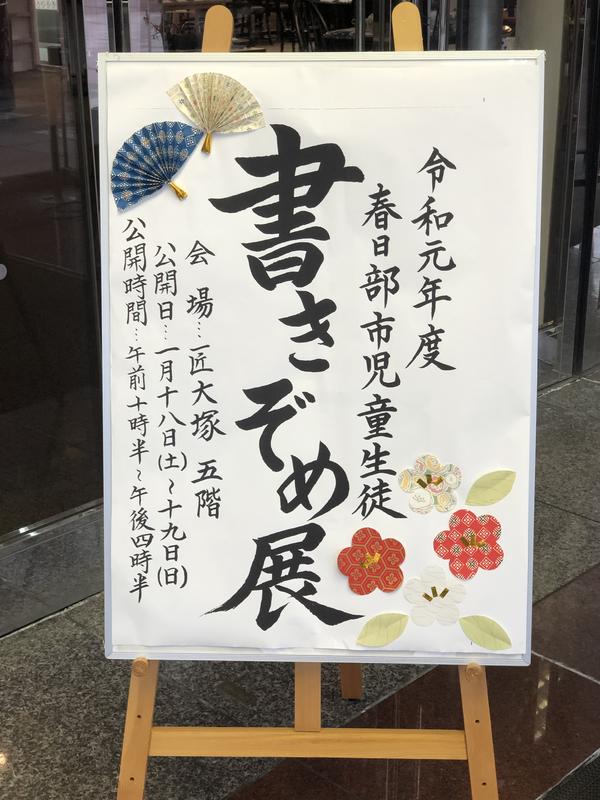 令和元年度
春日部市児童生徒
書きぞめ展
会 場…匠大塚 五階
公開日…一月十八日(土)～十九日(日)
公開時間…午前十時半～午後四時半